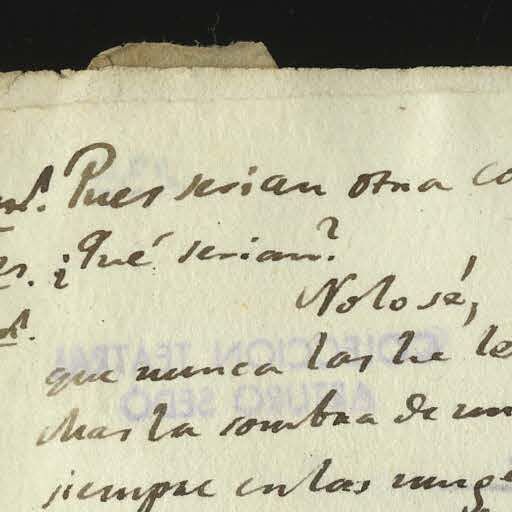 Pues serian otra co
¿Qué serian?
No lo sé,
que nunca las he le
Mas la sombra de un
siempre en las muge
COLECCION TEATRAL
ARTURO SEDO